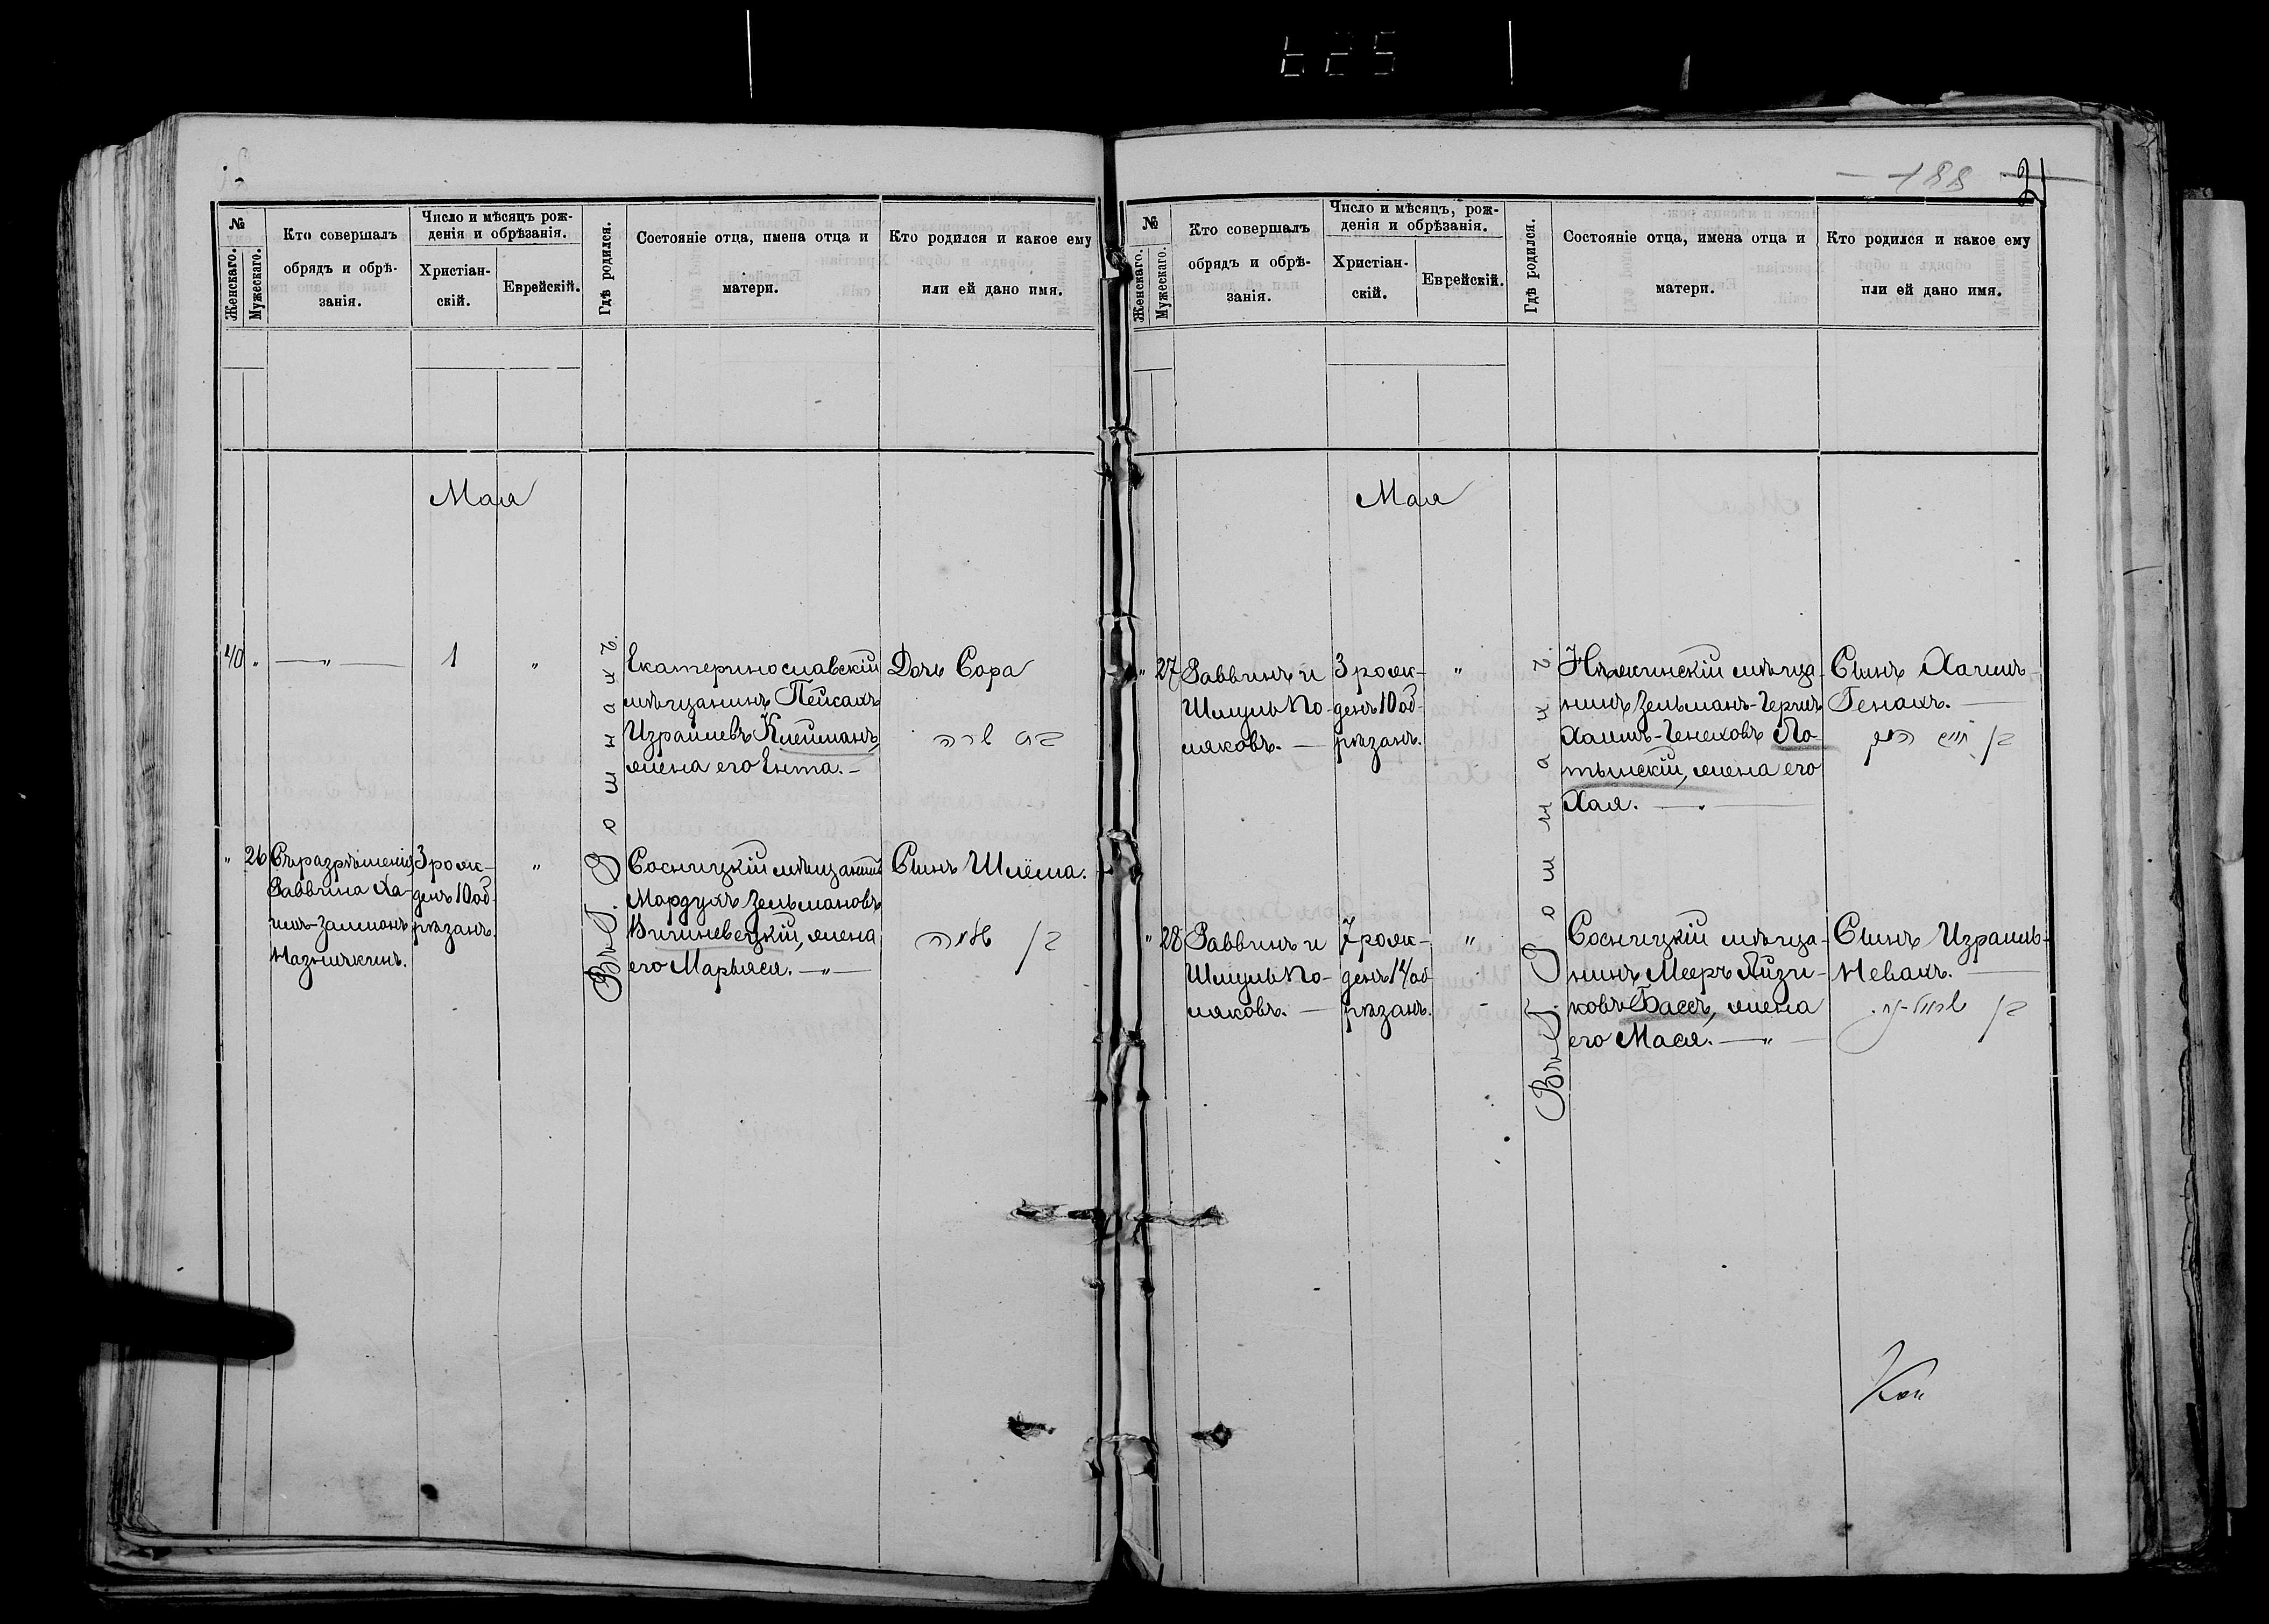 625
188 21
№
Женскаго.
Мужескаго.
Кто совершалъ
обрядъ и обрѣ-
занія.
Число и мѣсяцъ рож-
денія и обрѣзанія.
Христіан-
скій.
Еврейскій.
Гдѣ родился.
Состояніе отца, имена отца и
матери.
Кто родился и какое ему
или ей дано имя.
Мая
40 " — " — 1 "
Екатеринославскій
мѣщанинъ Пейсахъ
Израилевъ Клейманъ,
жена его Ента. —
Дочь Сора
בת שרה
" 26
Съ разрѣшенія
Раввина Ха-
имъ-Залманъ
3 рож-
денъ 10 об-
рѣзанъ.
"
Въ г. Кошнахъ
Сосницкій мѣщанинъ
Мордухъ Зельмановъ
Вишневецкій, жена
его Марьяся. — " —
Сынъ Шлёма.
בן שלמה
№
Женскаго.
Мужескаго.
Кто совершалъ
обрядъ и обрѣ-
занія.
Число и мѣсяцъ, рож-
денія и обрѣзанія.
Христіан-
скій.
Еврейскій.
Гдѣ родился.
Состояніе отца, имена отца и
матери.
Кто родился и какое ему
или ей дано имя.
Мая
" 27
Раввинъ и
Шмуль По-
ляковъ. —
3 рож-
денъ 10 об-
рѣзанъ.
"
Нѣжинскій мѣща-
нинъ Зельманъ-Гершъ
Хаимъ-Генеховъ Ло-
тынскій, жена его
Хая. —
Сынъ Хаимъ-
Генахъ. —
בן חיים
" 28
Раввинъ и
Шмуль По-
ляковъ. —
7 рож-
денъ 14 об-
рѣзанъ.
"
Сосницкій мѣща-
нинъ Мееръ Айзи-
ковъ Басъ, жена
его Мася. — "
Сынъ Израиль-
Невахъ. —
בן ישראל-נח.